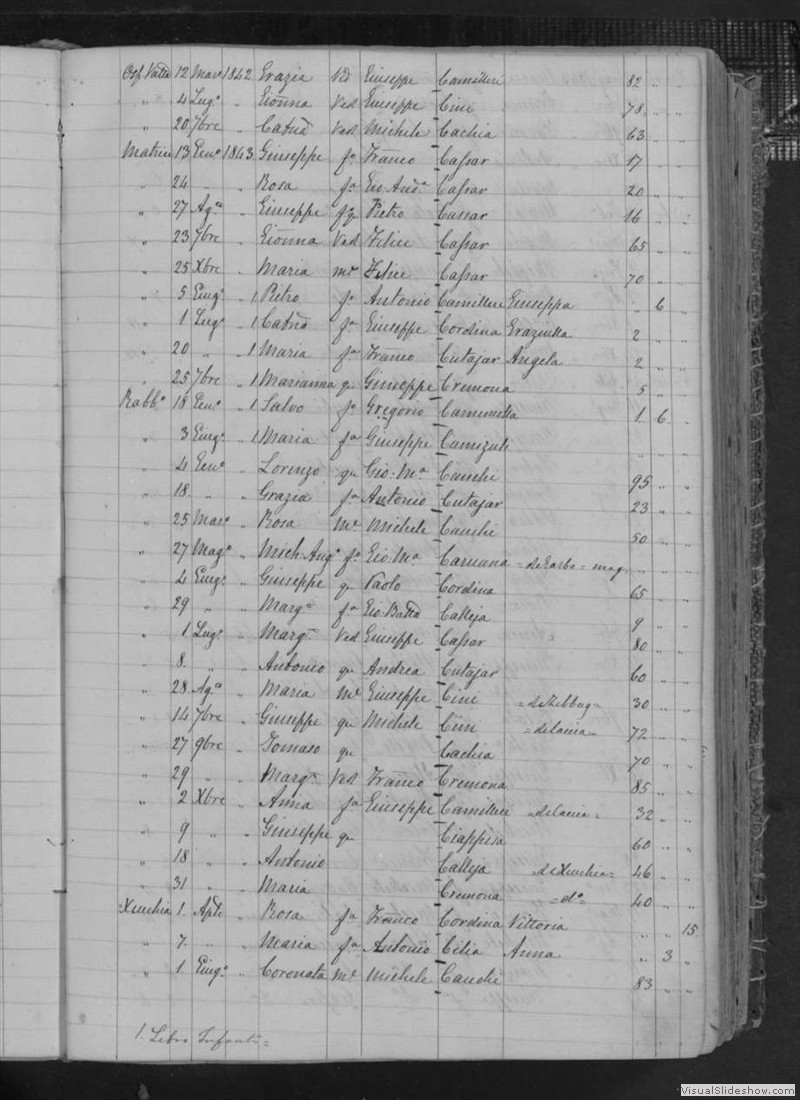 Osp. Vatto 12 Mar. 1842 Grazia Vd Giuseppe Camilleri 82 " "
" 4 Lug.o " Gioñna Ved Giuseppe Cini 78 " "
" 20 7bre " Catña Ved Michele Cachia 63 " "
Matrice 13 Gen.o 1843 Giuseppe f.o Franco Cassar 17 " "
" 24 " " Rosa f.a Gio Cassar 20 " "
" 27 Ag.o " Giuseppe Pietro Cassar 16 " "
" 23 7bre " Gioñna Ved Felice Cassar 65 " "
" 25 Xbre " Maria me Felice Cassar 70 " "
" 5 Giug.o " 1 Pietro f.o Antonio Camilleri Giuseppa " 6 "
" 1 Lug.o " 1 Catña f.a Giuseppe Cordina Graziulla 2 " "
" 20 " " 1 Maria f.a Franco Cutajar Angela 2 " "
" 25 7bre " 1 Marianna q Giuseppe Cremona 5 " "
Rabb.o 18 Gen.o " 1 Salvo f.o Gregorio Carmenella 1 6 "
" 3 Giug.o " 1 Maria f.a Giuseppe " " "
" 4 Gen.o " Lorenzo qu Gio: M.a Cauchi 95 " "
" 18 " " Grazia f.a Antonio Cutajar 23 " "
" 25 Mar.o " Rosa Me Michele Cauchi 50 " "
" 27 Mag.o " Mich: Aug.o f.o Gio: M.a Caruana = deGarbo = mag = " "
" 4 Giug.o " Giuseppe qu Paolo Cordina 65 " "
" 29 " " Marg.a f.a Gio Batta Calleja 9 " "
" 1 Lug.o " Marg.a Ved Giuseppe Cassar 80 " "
" 8 " " Antonio qu Andrea Cutajar 60 " "
" 28 Ag.o " Maria Me Giuseppe Cini = deKebbug = 30 " "
" 14 7bre " Giuseppe qu Michele Cini = delania = 72 " "
" 27 9bre " Tomaso qu Cachia 70 " "
" 29 " " Marg.a Ved Franco Cremona 85 " "
" 2 Xbre " Anna f.a Giuseppe Camilleri = delania = 32 " "
" 9 " " Giuseppe qu Ciappisa 60 " "
" 18 " " Antonio Calleja deXeuchia = 46 " "
" 31 " " Maria Cremona = do = 40 " "
Xeuchia 1 Aple " Rosa f.a Franco Cordina Vittoria " " 15
" 7 " " Maria f.a Antonio Cilia Anna " 3 "
" 1 Giug.o " Coronata Me Michele Cauchi 83 " "
1. Libro Infanti =
VisualSlideshow.com